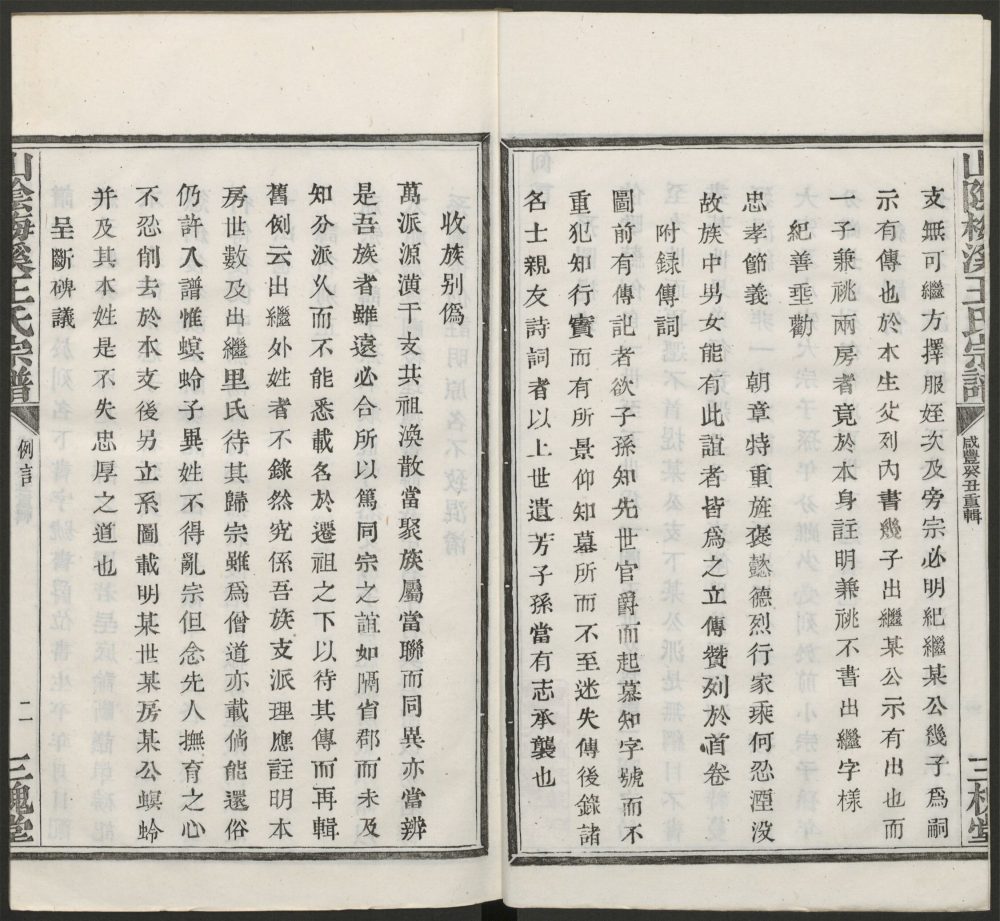 山陰梅溪王氏宗譜
咸豐癸丑重輯
三槐堂
支無可繼方擇服姪次及旁宗必明紀繼某公幾子爲嗣
示有傳也於本生父列內書幾子出繼某公示有出也而
一子兼祧兩房者竟於本身註明兼祧不書出繼字樣
紀善垂勸
忠孝節義
朝章特重旌褒懿德烈行家乘何忍湮沒
故族中男女能有此誼者皆爲之立傳贊列於首卷
附録傳詞
圖前有傳記者欲子孫知先世官爵而起慕知字號而不
重犯知行實而有所景仰知墓所而不至迷失傳後錄諸
名士親友詩詞者以上世遺芳子孫當有志承襲也
收族别僞
萬派源潢千支共祖渙散當聚族屬當聯而同異亦當辨
是吾族者雖遠必合所以篤同宗之誼如隔省郡而未及
知分派乆而不能悉載名於遷祖之下以待其傳而再輯
舊例云出繼外姓者不錄然究係吾族支派理應註明本
房世數及出繼里氏待其歸宗雖爲僧道亦載倘能還俗
仍許入譜惟螟蛉子異姓不得亂宗但念先人撫育之心
不忍削去於本支後另立系圖載明某世某房某公螟蛉
并及其本姓是不失忠厚之道也
呈斷碑議
山陰梅溪王氏宗譜
例言
二
三槐堂